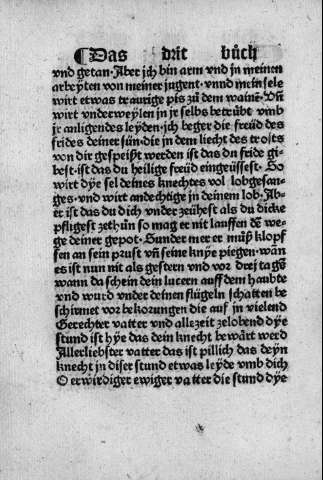 ¶Das drit bůch
vnd getan. Aber jch bin arm vnd jn meinen
arbeyten von meiner jugent. vnnd mein sele
wirt etwas traurige pis zů dem wainē. Vñ
wirt vnderweylen in jr selbs betrübt vmb
jr anligendes leyden. jch beger die freüd des
frides deiner sün. die in dem liecht des trosts
von dir gespeißt werden ist das du fride gi
best. ist das du heilige freud eingeüssest. So
wirt dye sel deines knechtes vol lobgesan-
ges. vnd wirt andechtige jn deinem lob. Ab-
er ist das du dich vnder zeühest als du dicke
pfligest zethůn so mag er nit lauffen dē we-
ge deiner gepot. Sunder mer er müß klopf
fen an sein prust vñ seine knye piegen. wān
es ist nun nit als gestern vnd vor drej tagē
wann da schein dein lucern auff dem haubte
vnd wurd vnder deinen flügeln schatten be
schirmet vor bekorungen die auf jn vielend
Gerechter vatter vnd allezeit zelobend dye
stund ist hye das dein knecht bewärt werd
Allerliebster vatter das ist pillich das deyn
knecht jn diser stund etwas leyde vmb dich
O erwirdiger ewiger vatter die stund dye